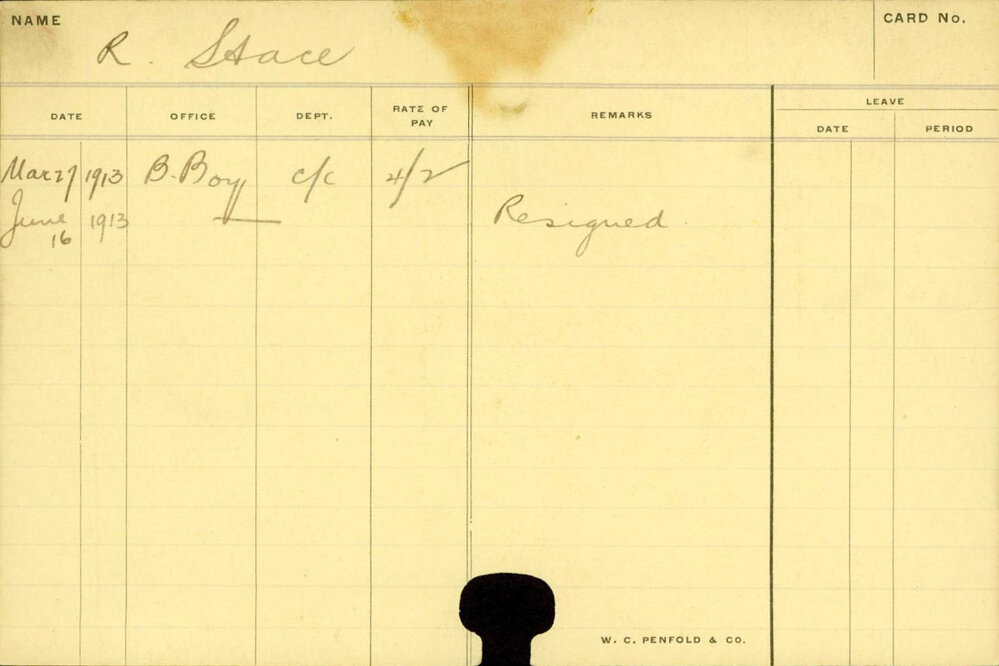 NAME
R. Stace
CARD No.
DATE OFFICE DEPT. RATE OF PAY REMARKS LEAVE
DATE PERIOD
Mar 27 1913 B. Boy c/c 4/2
June 16 1913 — Resigned
W. C. PENFOLD & CO.